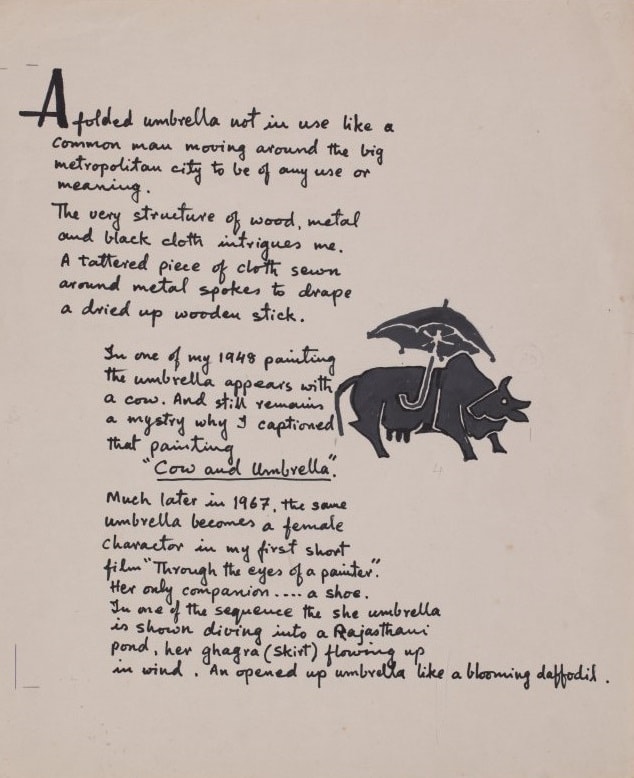 A folded umbrella not in use like a
common man moving around the big
metropolitan city to be of any use or
meaning.
The very structure of wood, metal
and black cloth intrigues me.
A tattered piece of cloth sewn
around metal spokes to drape
a dried up wooden stick.
In one of my 1948 painting
the umbrella appears with
a cow. And still remains
a mystry why I captioned
that painting
"Cow and Umbrella".
Much later in 1967, the same
umbrella becomes a female
charactor in my first short
film "Through the eyes of a painter".
Her only companion.... a shoe.
In one of the sequence the she umbrella
is shown diving into a Rajasthani
pond, her ghagra (skirt) flowing up
in wind. An opened up umbrella like a blooming daffodil.
4